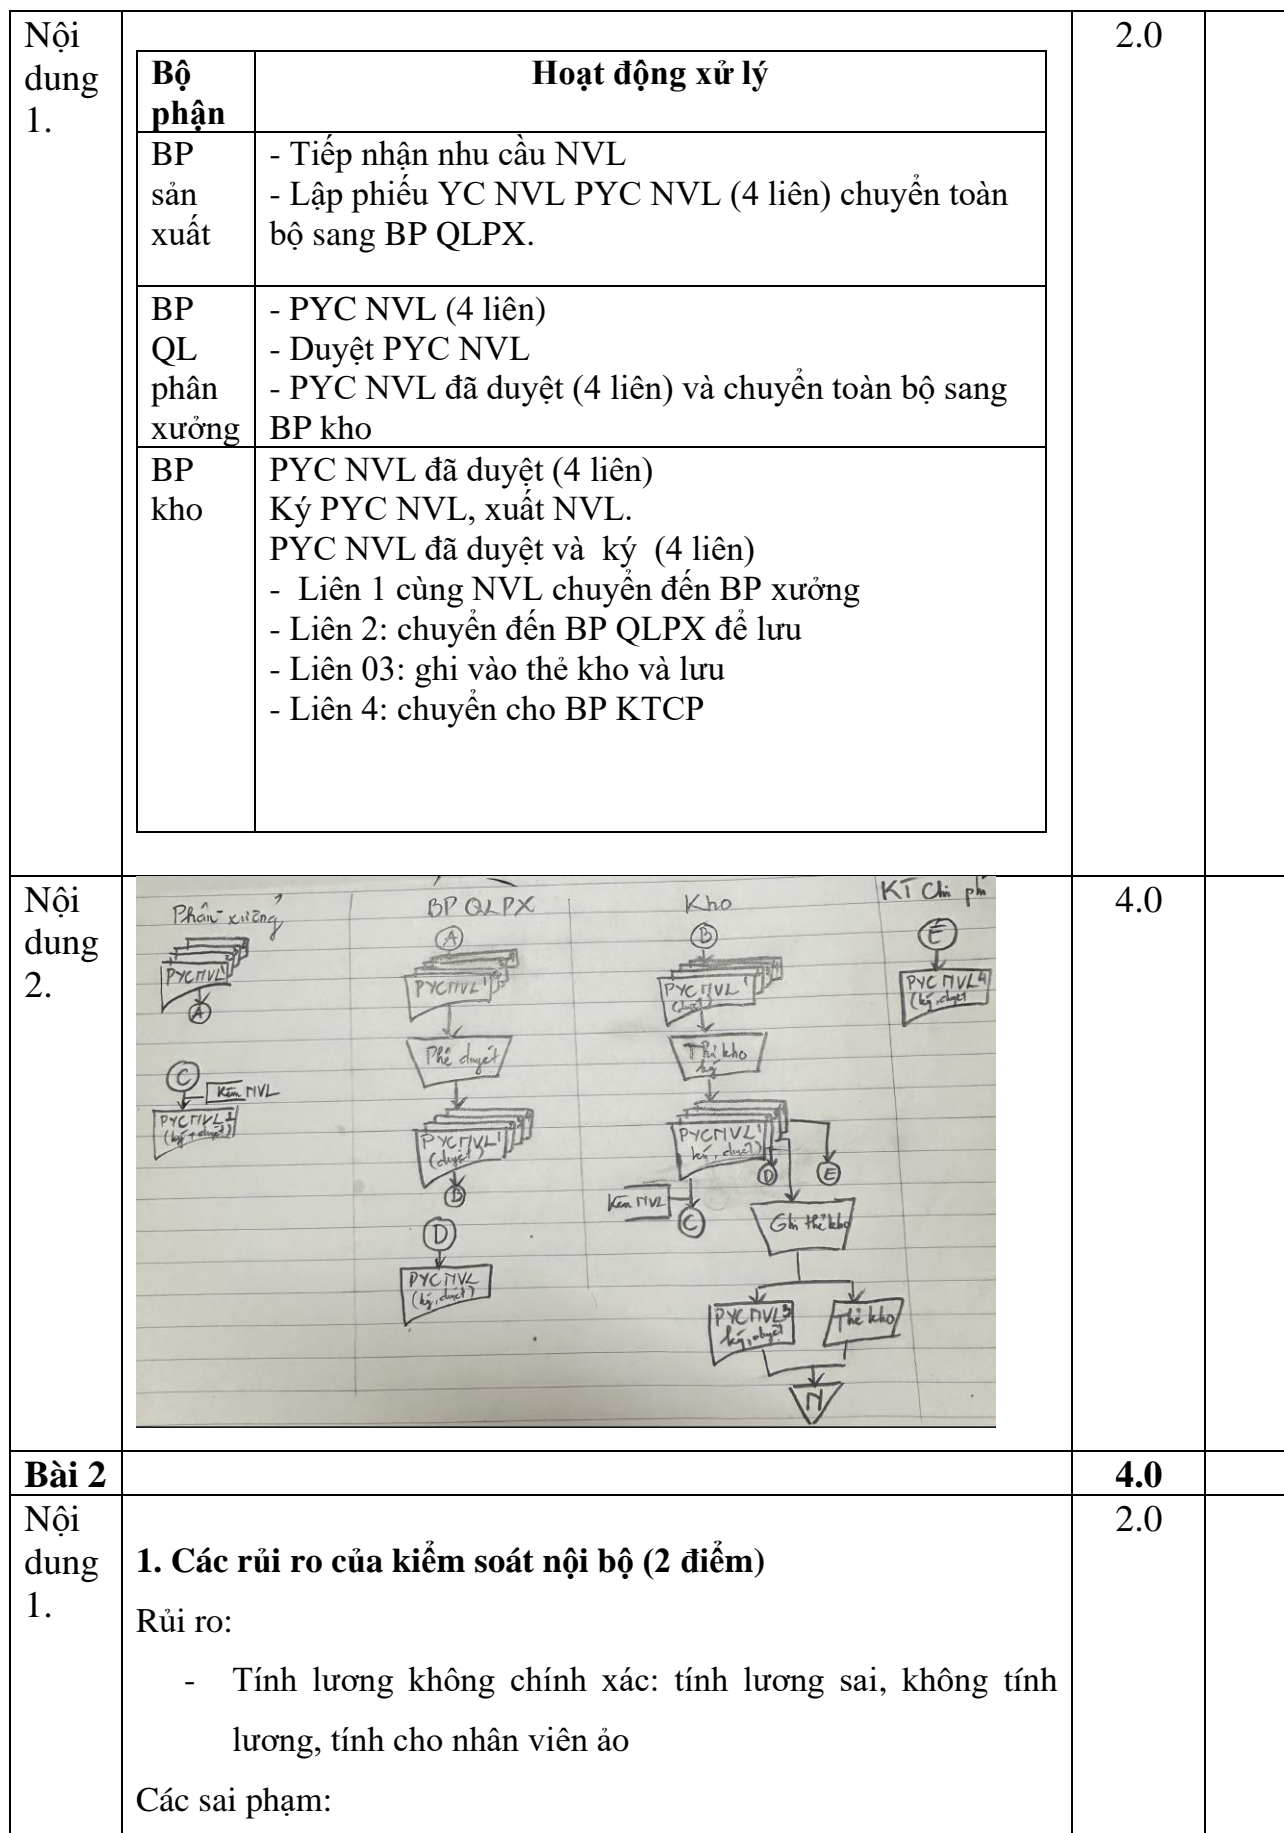 Nội
dung
1.
2.0
Bộ
phận
Hoạt động xử lý
BP
sản
xuất
- Tiếp nhận nhu cầu NVL
- Lập phiếu YC NVL PYC NVL (4 liên) chuyển toàn
bộ sang BP QLPX.
BP
QL
phân
xưởng
- PYC NVL (4 liên)
- Duyệt PYC NVL
- PYC NVL đã duyệt (4 liên) và chuyển toàn bộ sang
BP kho
BP
kho
PYC NVL đã duyệt (4 liên)
Ký PYC NVL, xuất NVL.
PYC NVL đã duyệt và ký (4 liên)
- Liên 1 cùng NVL chuyển đến BP xưởng
- Liên 2: chuyển đến BP QLPX để lưu
- Liên 03: ghi vào thẻ kho và lưu
- Liên 4: chuyển cho BP KTCP
Nội
dung
2.
4.0
Phân xưởng
PYCNVL
A
C
Kèm NVL
PYCNVL1
(ký + duyệt)
BP QLPX
A
PYCNVL1
Phê duyệt
PYCNVL1
(duyệt)
B
D
PYCNVL
(ký, duyệt)
Kho
B
PYCNVL1
(duyệt)
Thủ kho
ký
PYCNVL1
ký, duyệt
D
E
Kèm NVL
C
Ghi thẻ kho
PYCNVL3
ký, duyệt
Thẻ kho
N
KT Chi phí
E
PYC NVL4
(ký, duyệt
Bài 2
4.0
Nội
dung
1.
2.0
1. Các rủi ro của kiểm soát nội bộ (2 điểm)
Rủi ro:
- Tính lương không chính xác: tính lương sai, không tính
lương, tính cho nhân viên ảo
Các sai phạm: